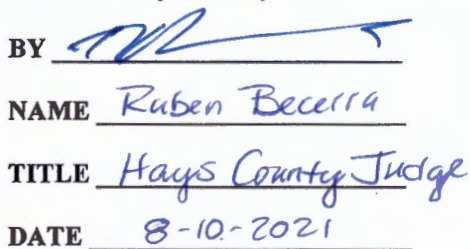 BY
NAME Ruben Becerra
TITLE Hays County Judge
DATE 8-10-2021